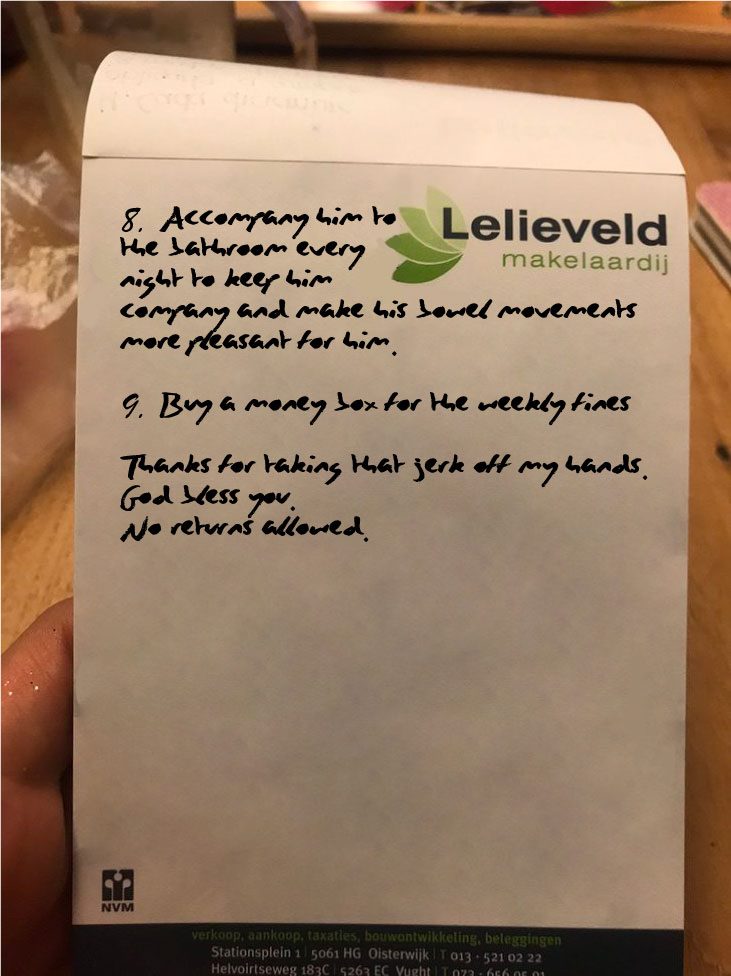 8. Accompany him to
the bathroom every
night to keep him
company and make his bowel movements
more pleasant for him.
9. Buy a money box for the weekly fines
Thanks for taking that jerk off my hands.
God bless you.
No returns allowed.
Lelieveld
makelaardij
NVM
verkoop, aankoop, taxaties, bouwontwikkeling, beleggingen
Stationsplein 1 | 5061 HG Oisterwijk | T 013 - 521 02 22
Helvoirtseweg 183C | 5263 EC Vught | T 073 - 656 05 01